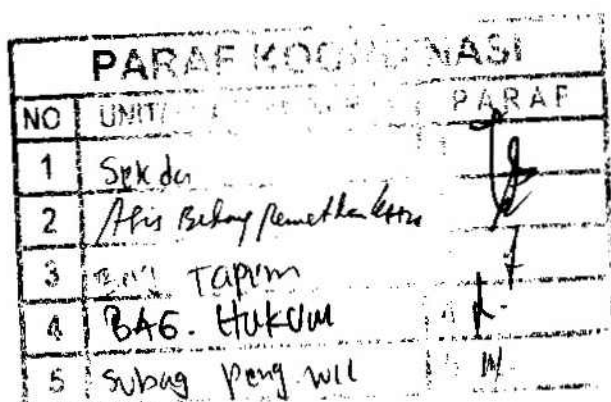 PARAF KOORDINASI
NO UNIT/ PARAF
1 Sekda
2 Asis Bidang
3 Tapim
4 BAG. HUKUM
5 Subag Peng. Wil